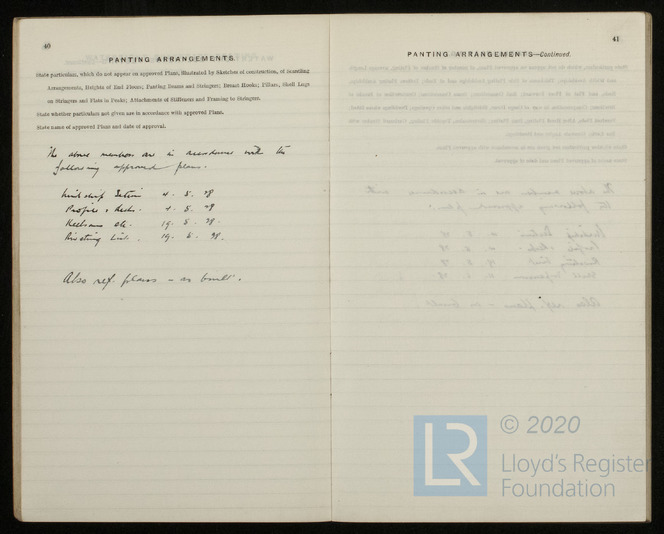 40
PANTING ARRANGEMENTS
State particulars, which do not appear on approved Plans, illustrated by Sketches of construction, of Panting
Arrangements, Heights of Tank Floors, Panting Beams and Stringers; Breast Hooks; Pillars, Shell Lugs
on Stringers and Flats in Peaks; Attachments of Stiffeners and Framing to Stringers.
State whether particulars not given are in accordance with approved Plans.
State name of approved Plans and date of approval.
The above members are in accordance with the
following approved plans.
Midship Section 4. 5. 28
Profile & Decks. 4. 5. 28
Keelsons etc. 19. 5. 28.
Riveting List. 19. 5. 28.
Also ref. plans - as built.
41
PANTING ARRANGEMENTS—Continued.
LR
© 2020
Lloyd's Register
Foundation